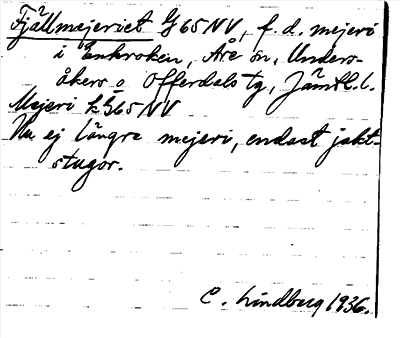 Fjällmejeriet G65NV, f.d. mejeri
i Enkroken, Åre sn, Unders-
åkers o Offerdals tg, Jämtl. l.
Mejeri kG65NV
Nu ej längre mejeri, endast jakt-
stugor.
C. Lindberg 1936.